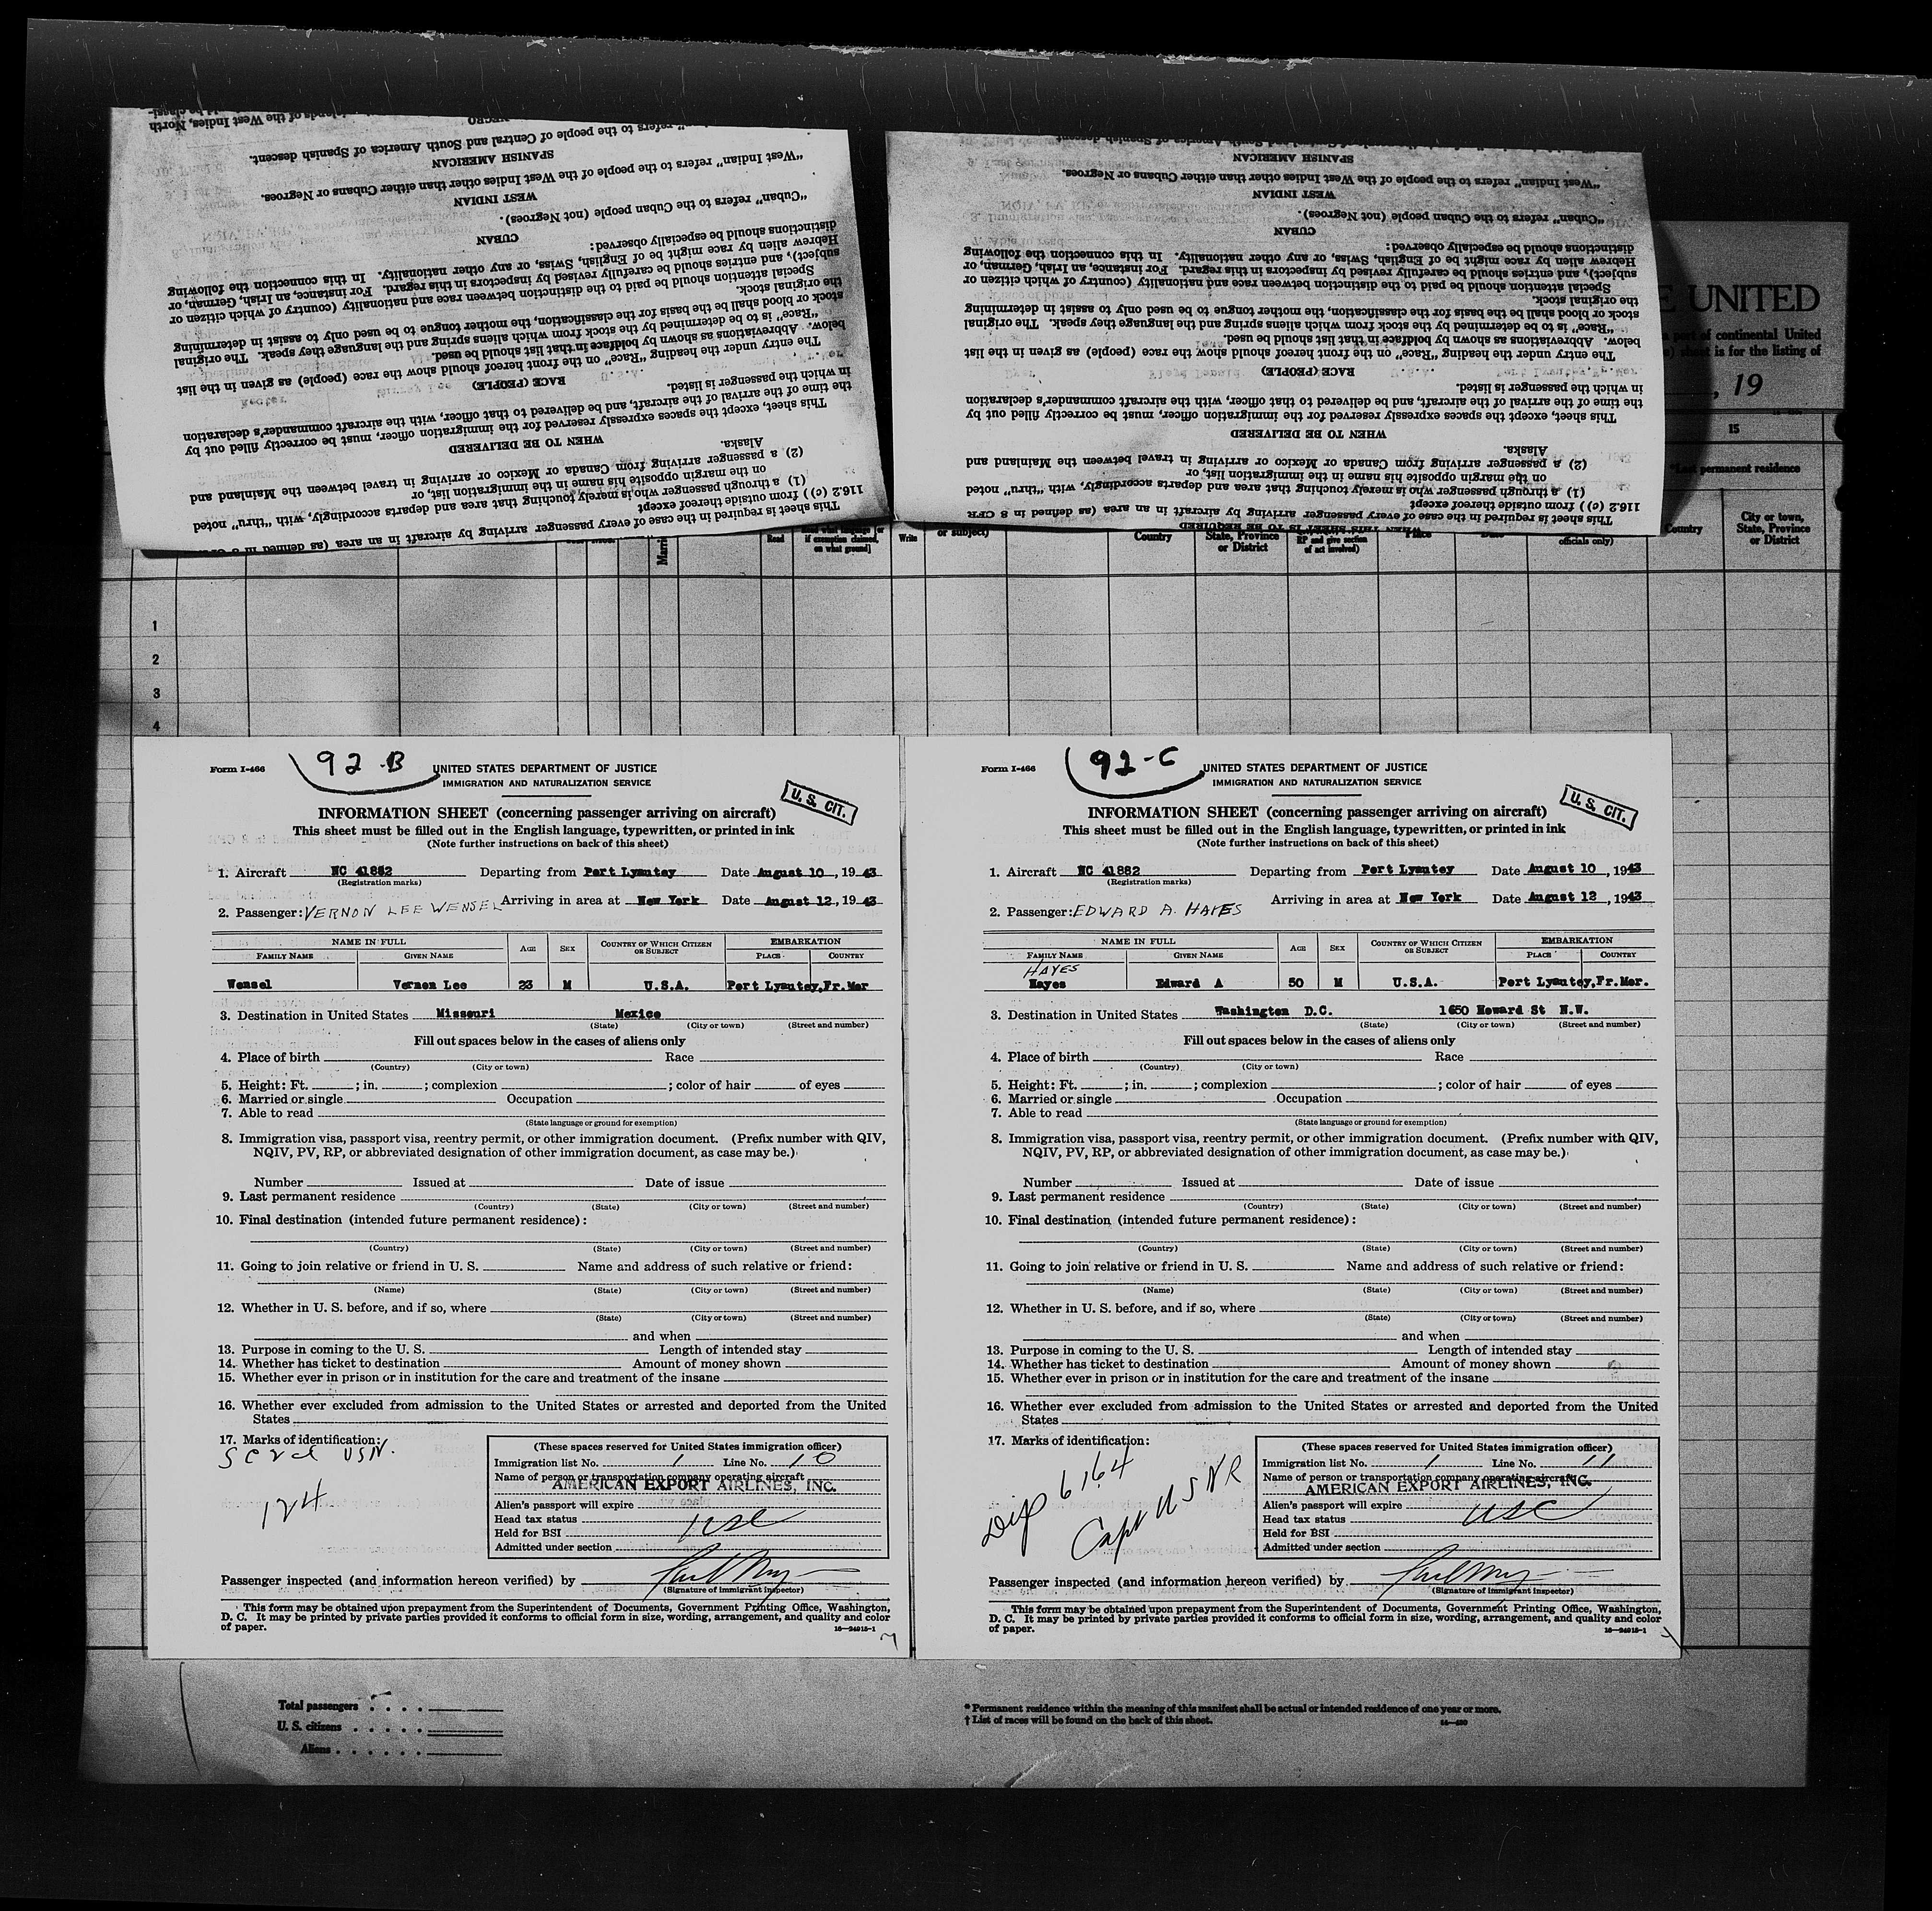 UNITED
part of continental United
sheet is for the listing of
, 19
15
*Last permanent residence
Country
City or town,
State, Province
or District
Read
if exemption claimed,
on what ground]
Write
or subject)
Country
State, Province
or District
RP and give section
of act involved)
Place
Date
officials only)
NEGRO
"refers to the people of Central and South America of Spanish descent.
SPANISH AMERICAN
"West Indian" refers to the people of the West Indies other than either Cubans or Negroes.
WEST INDIAN
"Cuban" refers to the Cuban people (not Negroes).
CUBAN
distinctions should be especially observed:
Hebrew alien by race might be of English, Swiss, or any other nationality. In this connection the following
subject), and entries should be carefully revised by inspectors in this regard. For instance, an Irish, German, or
Special attention should be paid to the distinction between race and nationality (country of which citizen or
the original stock.
stock or blood shall be the basis for the classification, the mother tongue to be used only to assist in determining
"Race" is to be determined by the stock from which aliens spring and the language they speak. The original
below. Abbreviations as shown by boldface in that list should be used.
The entry under the heading "Race" on the front hereof should show the race (people) as given in the list
RACE (PEOPLE)
in which the passenger is listed.
the time of the arrival of the aircraft, and be delivered to that officer, with the aircraft commander's declaration
This sheet, except the spaces expressly reserved for the immigration officer, must be correctly filled out by
WHEN TO BE DELIVERED
Alaska.
(2) a passenger arriving from Canada or Mexico or arriving in travel between the Mainland and
on the margin opposite his name in the immigration list, or
(1) a through passenger who is merely touching that area and departs accordingly, with "thru" noted
116.2 (c)) from outside thereof except
This sheet is required in the case of every passenger arriving by aircraft in an area (as defined in 8 CFR
SPANISH AMERICAN
"West Indian" refers to the people of the West Indies other than either Cubans or Negroes.
WEST INDIAN
"Cuban" refers to the Cuban people (not Negroes).
CUBAN
distinctions should be especially observed:
Hebrew alien by race might be of English, Swiss, or any other nationality. In this connection the following
subject), and entries should be carefully revised by inspectors in this regard. For instance, an Irish, German, or
Special attention should be paid to the distinction between race and nationality (country of which citizen or
the original stock.
stock or blood shall be the basis for the classification, the mother tongue to be used only to assist in determining
"Race" is to be determined by the stock from which aliens spring and the language they speak. The original
below. Abbreviations as shown by boldface in that list should be used.
The entry under the heading "Race" on the front hereof should show the race (people) as given in the list
RACE (PEOPLE)
in which the passenger is listed.
the time of the arrival of the aircraft, and be delivered to that officer, with the aircraft commander's declaration
This sheet, except the spaces expressly reserved for the immigration officer, must be correctly filled out by
WHEN TO BE DELIVERED
Alaska.
(2) a passenger arriving from Canada or Mexico or arriving in travel between the Mainland and
on the margin opposite his name in the immigration list, or
(1) a through passenger who is merely touching that area and departs accordingly, with "thru" noted
116.2 (c)) from outside thereof except
This sheet is required in the case of every passenger arriving by aircraft in an area (as defined in 8 CFR
WHEN THIS SHEET IS TO BE REQUIRED
1
2
3
4
Form I-466
92-B
UNITED STATES DEPARTMENT OF JUSTICE
IMMIGRATION AND NATURALIZATION SERVICE
U. S. CIT.
INFORMATION SHEET (concerning passenger arriving on aircraft)
This sheet must be filled out in the English language, typewritten, or printed in ink
(Note further instructions on back of this sheet)
1. Aircraft NC 41882 Departing from Port Lyautey Date August 10, 1943
(Registration marks)
Arriving in area at New York Date August 12, 1943
2. Passenger: VERNON LEE WENSEL
NAME IN FULL AGE SEX COUNTRY OF WHICH CITIZEN OR SUBJECT EMBARKATION
FAMILY NAME GIVEN NAME PLACE COUNTRY
Wensel Vernon Lee 23 M U.S.A. Port Lyautey, Fr. Mor
3. Destination in United States Missouri Mexico
(State) (City or town) (Street and number)
Fill out spaces below in the cases of aliens only
4. Place of birth Race
(Country) (City or town)
5. Height: Ft. ; in. ; complexion ; color of hair of eyes
6. Married or single Occupation
7. Able to read
(State language or ground for exemption)
8. Immigration visa, passport visa, reentry permit, or other immigration document. (Prefix number with QIV,
NQIV, PV, RP, or abbreviated designation of other immigration document, as case may be.)
Number Issued at Date of issue
9. Last permanent residence
(Country) (State) (City or town) (Street and number)
10. Final destination (intended future permanent residence):
(Country) (State) (City or town) (Street and number)
11. Going to join relative or friend in U. S. Name and address of such relative or friend:
(Name) (State) (City or town) (Street and number)
12. Whether in U. S. before, and if so, where
(State) (City or town) (Street and number)
and when
13. Purpose in coming to the U. S. Length of intended stay
14. Whether has ticket to destination Amount of money shown
15. Whether ever in prison or in institution for the care and treatment of the insane
16. Whether ever excluded from admission to the United States or arrested and deported from the United
States
17. Marks of identification:
USN.
124
(These spaces reserved for United States immigration officer)
Immigration list No. 1 Line No. 10
Name of person or transportation company operating aircraft
AMERICAN EXPORT AIRLINES, INC.
Alien's passport will expire
Head tax status USC
Held for BSI
Admitted under section
Passenger inspected (and information hereon verified) by
(Signature of immigrant inspector)
This form may be obtained upon prepayment from the Superintendent of Documents, Government Printing Office, Washington,
D. C. It may be printed by private parties provided it conforms to official form in size, wording, arrangement, and quality and color
of paper.
16—24915-1
Form I-466
92-C
UNITED STATES DEPARTMENT OF JUSTICE
IMMIGRATION AND NATURALIZATION SERVICE
U. S. CIT.
INFORMATION SHEET (concerning passenger arriving on aircraft)
This sheet must be filled out in the English language, typewritten, or printed in ink
(Note further instructions on back of this sheet)
1. Aircraft NC 41882 Departing from Port Lyautey Date August 10, 1943
(Registration marks)
Arriving in area at New York Date August 12, 1943
2. Passenger: EDWARD A. HAYES
NAME IN FULL AGE SEX COUNTRY OF WHICH CITIZEN OR SUBJECT EMBARKATION
FAMILY NAME GIVEN NAME PLACE COUNTRY
HAYES
Hayes Edward A 50 M U.S.A. Port Lyautey, Fr. Mor.
3. Destination in United States Washington D.C. 1650 Howard St N.W.
(State) (City or town) (Street and number)
Fill out spaces below in the cases of aliens only
4. Place of birth Race
(Country) (City or town)
5. Height: Ft. ; in. ; complexion ; color of hair of eyes
6. Married or single Occupation
7. Able to read
(State language or ground for exemption)
8. Immigration visa, passport visa, reentry permit, or other immigration document. (Prefix number with QIV,
NQIV, PV, RP, or abbreviated designation of other immigration document, as case may be.)
Number Issued at Date of issue
9. Last permanent residence
(Country) (State) (City or town) (Street and number)
10. Final destination (intended future permanent residence):
(Country) (State) (City or town) (Street and number)
11. Going to join relative or friend in U. S. Name and address of such relative or friend:
(Name) (State) (City or town) (Street and number)
12. Whether in U. S. before, and if so, where
(State) (City or town) (Street and number)
and when
13. Purpose in coming to the U. S. Length of intended stay
14. Whether has ticket to destination Amount of money shown
15. Whether ever in prison or in institution for the care and treatment of the insane
16. Whether ever excluded from admission to the United States or arrested and deported from the United
States
17. Marks of identification:
Dip 6164
Capt USNR
(These spaces reserved for United States immigration officer)
Immigration list No. 1 Line No. 11
Name of person or transportation company operating aircraft
AMERICAN EXPORT AIRLINES, INC.
Alien's passport will expire
Head tax status USC
Held for BSI
Admitted under section
Passenger inspected (and information hereon verified) by
(Signature of immigrant inspector)
This form may be obtained upon prepayment from the Superintendent of Documents, Government Printing Office, Washington,
D. C. It may be printed by private parties provided it conforms to official form in size, wording, arrangement, and quality and color
of paper.
16—24915-1
Total passengers . . . .
U. S. citizens . . . . .
Aliens . . . . . .
* Permanent residence within the meaning of this manifest shall be actual or intended residence of one year or more.
† List of races will be found on the back of this sheet.